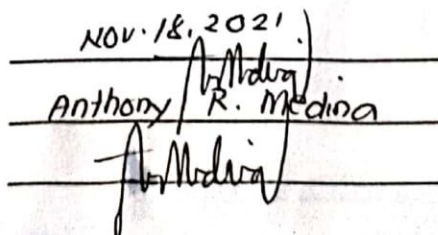 Nov. 18, 2021
Anthony R. Medina